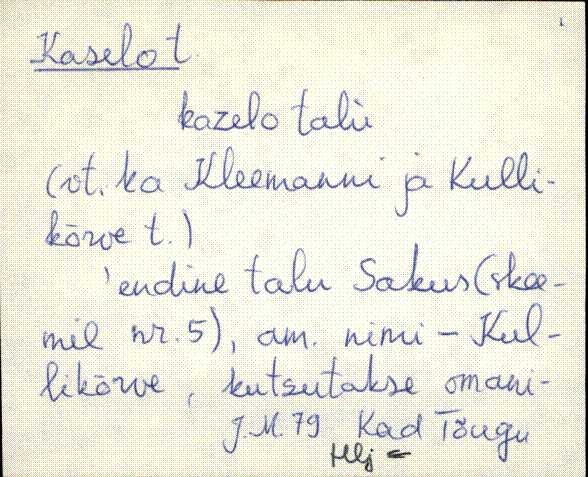 Kaselo t.
kazelo talù
(vt. ka Kleemanni ja Kulli-
kõrve t.)
'endine talu Sakus (skee-
mil nr. 5), am. nimi – Kul-
likõrve, kutsutakse omani-
J.M. 79 Kad Tõugu
Hlj